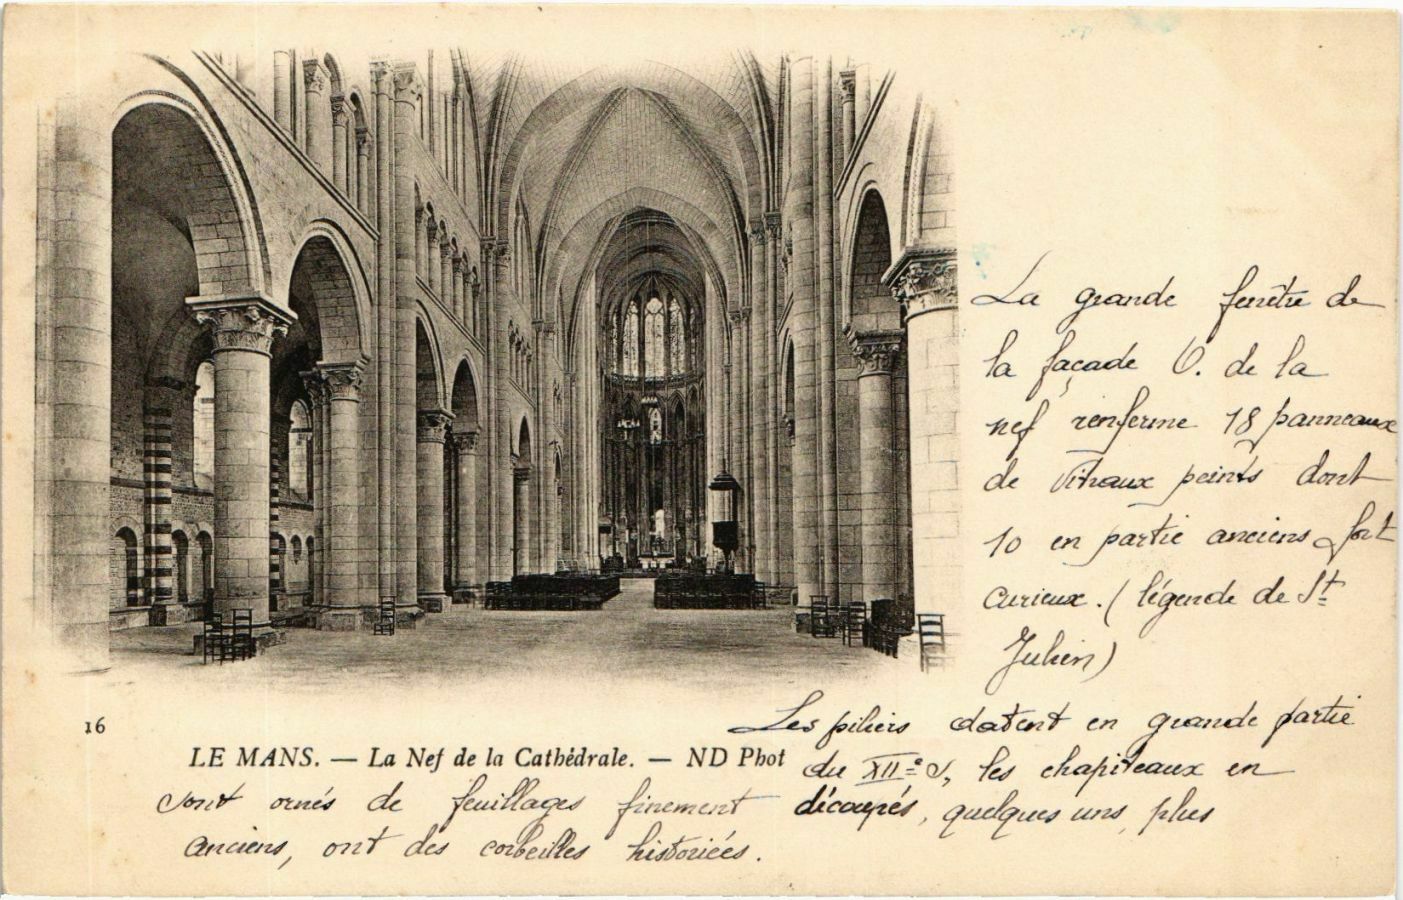 La grande fenêtre de
la façade O. de la
nef renferme 18 panneaux
de vitraux peints dont
10 en partie anciens fort
curieux. (légende de St
Julien)
16
Les piliers datent en grande partie
LE MANS. — La Nef de la Cathédrale. — ND Phot
du XIIe S, les chapiteaux en
sont ornés de feuillages finement découpés, quelques uns, plus
anciens, ont des corbeilles historiées.